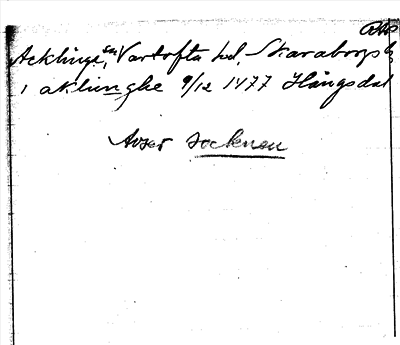 Acklinge sn, Vartofta hd, Skaraborgs l
i aklunghe 9/12 1477 Hångsdal
Avser socknen